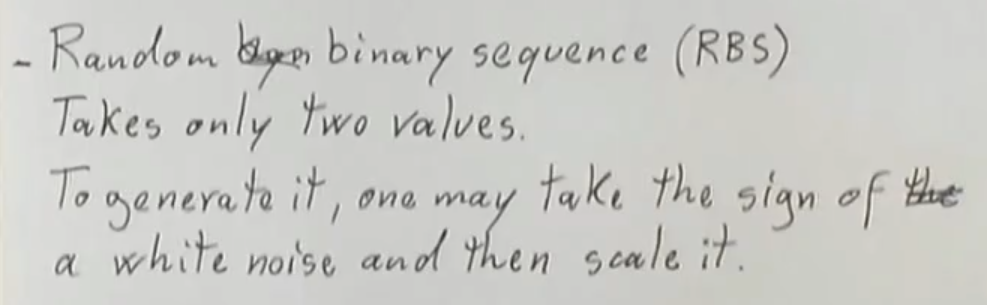 - Random binary sequence (RBS)
Takes only two values.
To generate it, one may take the sign of the
a white noise and then scale it.